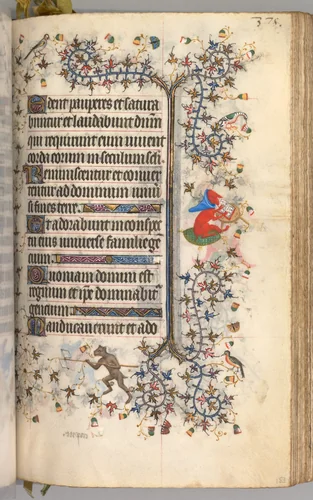 375.
Edent pauperes et satura
buntur et laudabunt dnm
qui requirunt eum vivent
corda eorum in seculum scli.
Reminiscentur et conver
tentur ad dominum univ
si fines terre.
Et adorabunt in conspec
tu eius universe familie ge
cium.
Quoniam domini est
regnum et ipse dominabit
gencium.
Manducaverunt et ado